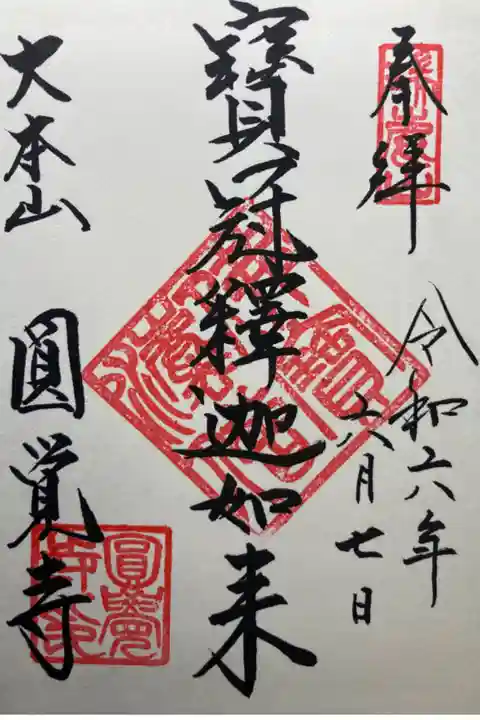 奉拝
令和六年
六月七日
寳冠釋迦如来
大本山 圓覺寺